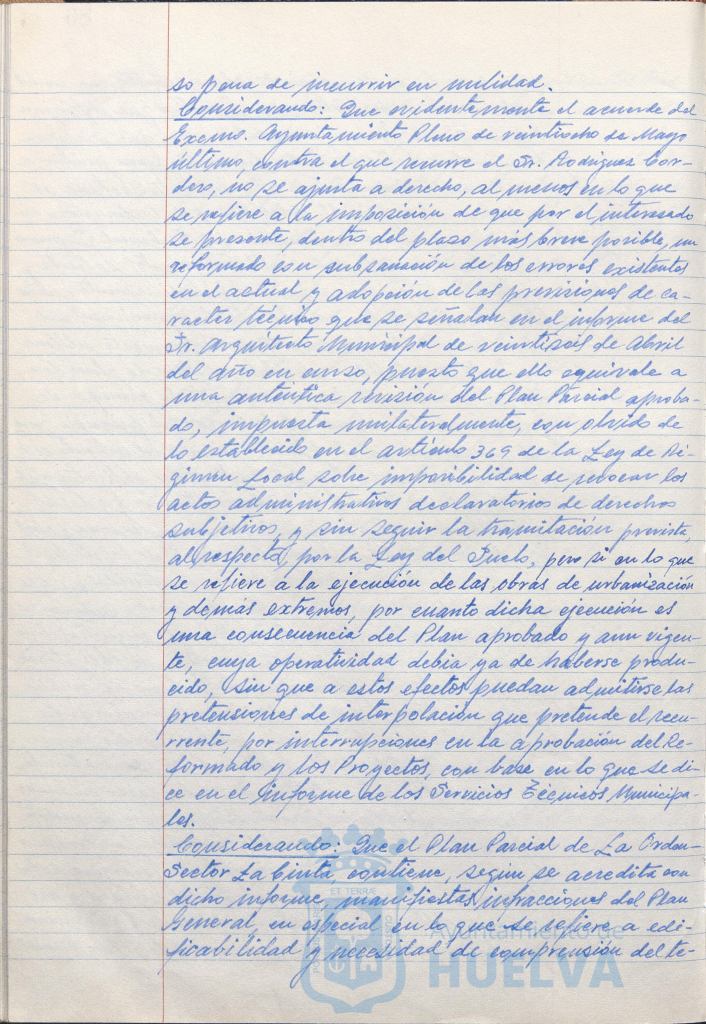 so pena de incurrir en nulidad.
Considerando: Que evidentemente el acuerdo del
Excmo. Ayuntamiento Pleno de veintiocho de Mayo
último, contra el que recurre el Sr. Rodriguez Cor-
dero, no se ajusta a derecho, al menos en lo que
se refiere a la imposición de que por el interesado
se presente, dentro del plazo más breve posible, un
reformado con subsanación de los errores existentes
en el actual y adopción de las previsiones de ca-
racter técnico que se señalan en el informe del
Sr. Arquitecto Municipal de veintiseis de Abril
del año en curso, puesto que ello equivale a
una auténtica revisión del Plan Parcial aproba-
do, impuesta unilateralmente, con olvido de
lo establecido en el artículo 369 de la Ley de Ré-
gimen Local sobre imposibilidad de revocar los
actos administrativos declaratorios de derechos
subjetivos, y sin seguir la tramitación prevista,
al respecto, por la Ley del Suelo, pero si en lo que
se refiere a la ejecución de las obras de urbanización
y demas extremos, por cuanto dicha ejecución es
una consecuencia del Plan aprobado y aun vigen-
te, cuya operatividad debia ya de haberse produ-
cido, sin que a estos efectos puedan admitirse las
pretensiones de interpolación que pretende el recu-
rrente, por interrupciones en la aprobación del Re-
formado y los Proyectos, con base en lo que se di-
ce en el informe de los Servicios Técnicos Municipa-
les.
Considerando: Que el Plan Parcial de La Orden-
Sector La Cinta contiene, segun se acredita con
dicho informe, manifiestas infracciones del Plan
General, en especial en lo que se refiere a edi-
ficabilidad y necesidad de comprensión del te-
Ayuntamiento de
HUELVA